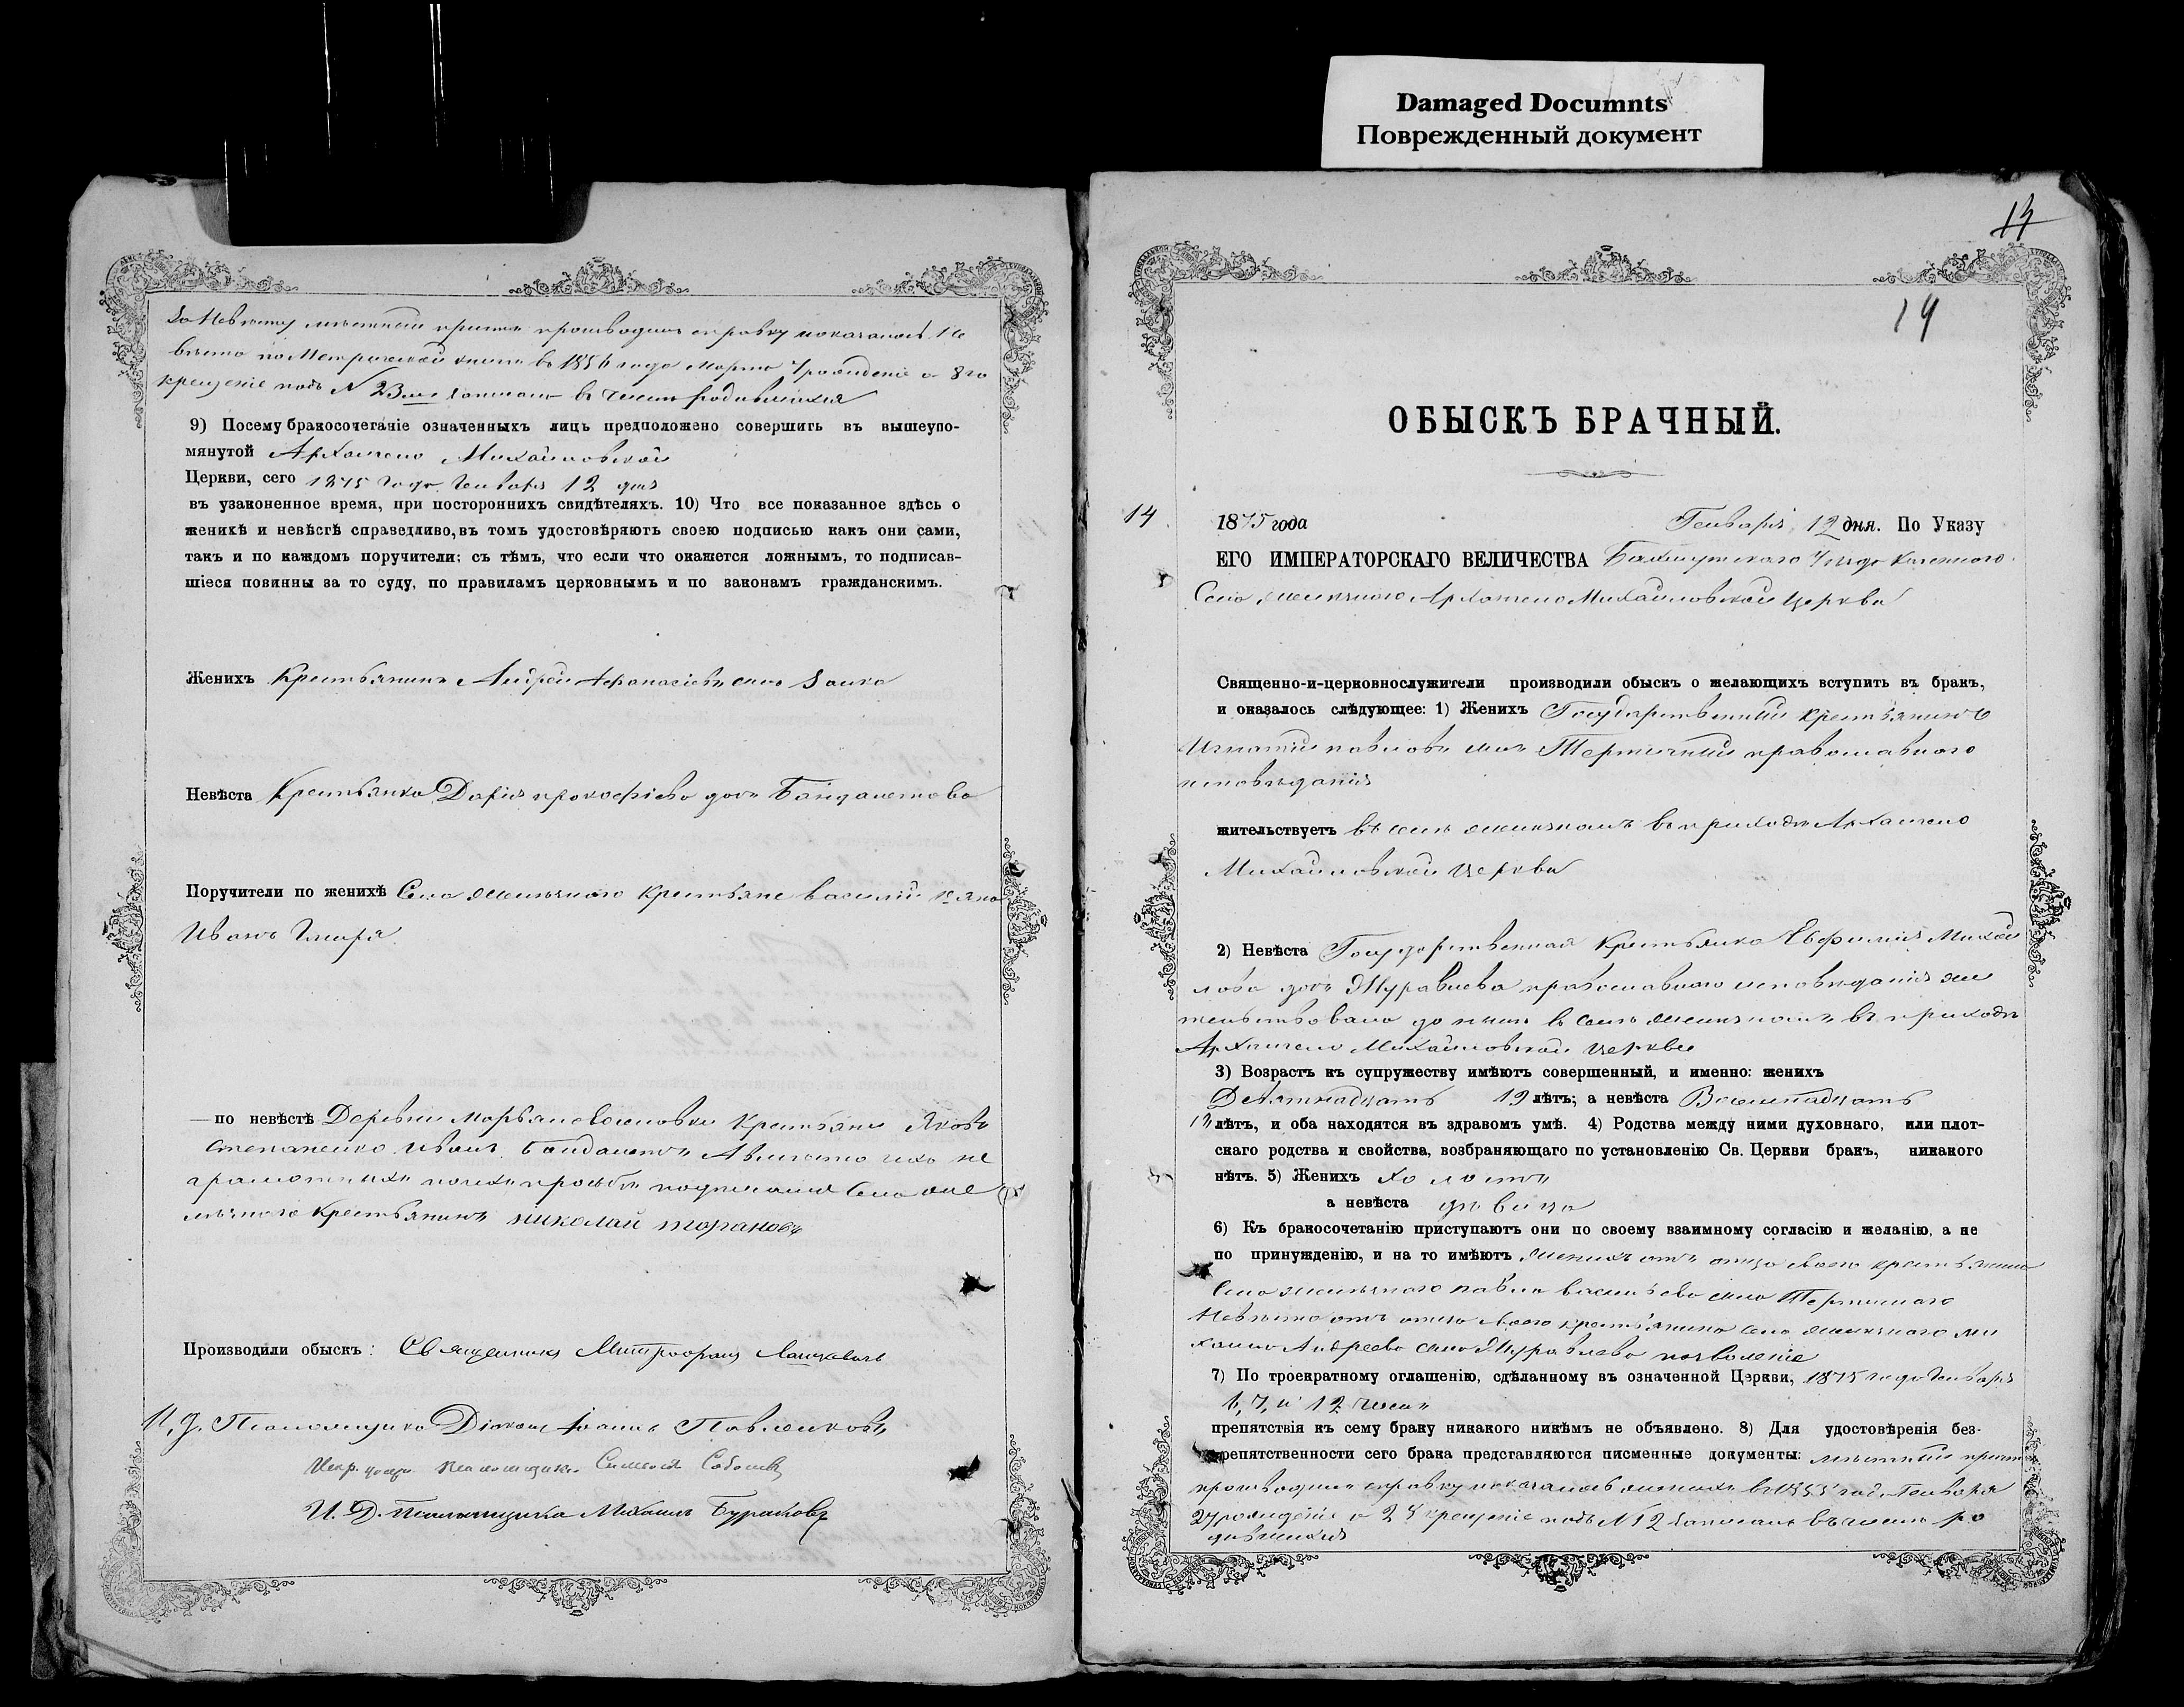 Damaged Documnts
Поврежденный документ
14
За Невѣсту мѣстный причтъ производилъ справку показалось Не
вѣста по Метрической книгѣ въ 1856 года Марта 7 рожденіе а 8го
крещеніе подъ N 23мъ записано въ числѣ родившихся
9) Посему бракосочетаніе означенныхъ лицъ предположено совершить въ вышеупо-
мянутой Архангело Михайловской
Церкви, сего 1875 года Генваря 12 дня
въ узаконенное время, при постороннихъ свидѣтеляхъ. 10) Что все показанное здѣсь о
женихѣ и невѣстѣ справедливо, въ томъ удостовѣряютъ своею подписью какъ они сами,
такъ и по каждомъ поручители; съ тѣмъ, что если что окажется ложнымъ, то подписав-
шіеся повинны за то суду, по правиламъ церковнымъ и по законамъ гражданскимъ.
Женихъ Крестьянинъ Андрей Афанасіевъ сынъ Заика
Невѣста Крестьянка Дарія Прокофіева дочь Бандалетова
Поручители по женихѣ Села Желѣзного Крестьяне Василій
Иванъ
— по невѣстѣ Деревни Крестьяне Яковъ
Степаненко Иванъ Бандалетъ А вмѣсто ихъ не
грамотныхъ по ихъ прозьбѣ подписался Села Же
лѣзного Крестьянинъ Николай Тарановъ
Производили обыскъ: Священникъ Митрофанъ
И. д. Псаломщика Діаконъ Іоаннъ Павленковъ
Испр. долж. псаломщика Симеонъ Соболевъ
И. Д. Псаломщика Михаилъ Бураковъ
14
ОБЫСКЪ БРАЧНЫЙ.
14
1875 года Генваря 12 дня. По Указу
ЕГО ИМПЕРАТОРСКАГО ВЕЛИЧЕСТВА Бахмутского уѣзда Казенного
Села Желѣзного Архангело Михайловской Церкви
Священно-и-церковнослужители производили обыскъ о желающихъ вступить въ бракъ,
и оказалось слѣдующее: 1) Женихъ Государственный крестьянинъ
Игнатій Павловъ сынъ Тертичный православного
исповѣданія
жительствуетъ въ селѣ Желѣзномъ въ приходѣ Архангело
Михайловской церкви
2) Невѣста Государственная Крестьянка Евфимія Михай
лова дочь Журавлева православного исповѣданія жи
тельствовала до нынѣ въ селѣ Желѣзномъ въ приходѣ
Архангело Михайловской церкви
3) Возрастъ къ супружеству имѣютъ совершенный, и именно: женихъ
Девятнадцать 19 лѣтъ; а невѣста Восемнадцать
18 лѣтъ, и оба находятся въ здравомъ умѣ. 4) Родства между ними духовнаго, или плот-
скаго родства и свойства, возбраняющаго по установленію Св. Церкви бракъ, никакого
нѣтъ. 5) Женихъ холостъ
а невѣста дѣвица
6) Къ бракосочетанію приступаютъ они по своему взаимному согласію и желанію, а не
по принужденію, и на то имѣютъ женихъ отъ отца своего крестьянина
Села Желѣзного Павла Васильева сына Тертичного
Невѣста отъ отца своего крестьянина села Желѣзного Ми
хаила Андреева сына Журавлева позволеніе
7) По троекратному оглашенію, сдѣланному въ означенной Церкви, 1875 года Генваря
6, 7, и 12 числъ
препятствія къ сему браку никакого никѣмъ не объявлено. 8) Для удостовѣренія без-
препятственности сего брака представляются писменные документы: мѣстный причтъ
производилъ справку показалось женихъ въ 1855 год. Генваря
27 рожденіе а 28 крещеніе подъ N 12 записанъ въ числѣ ро
дившихся